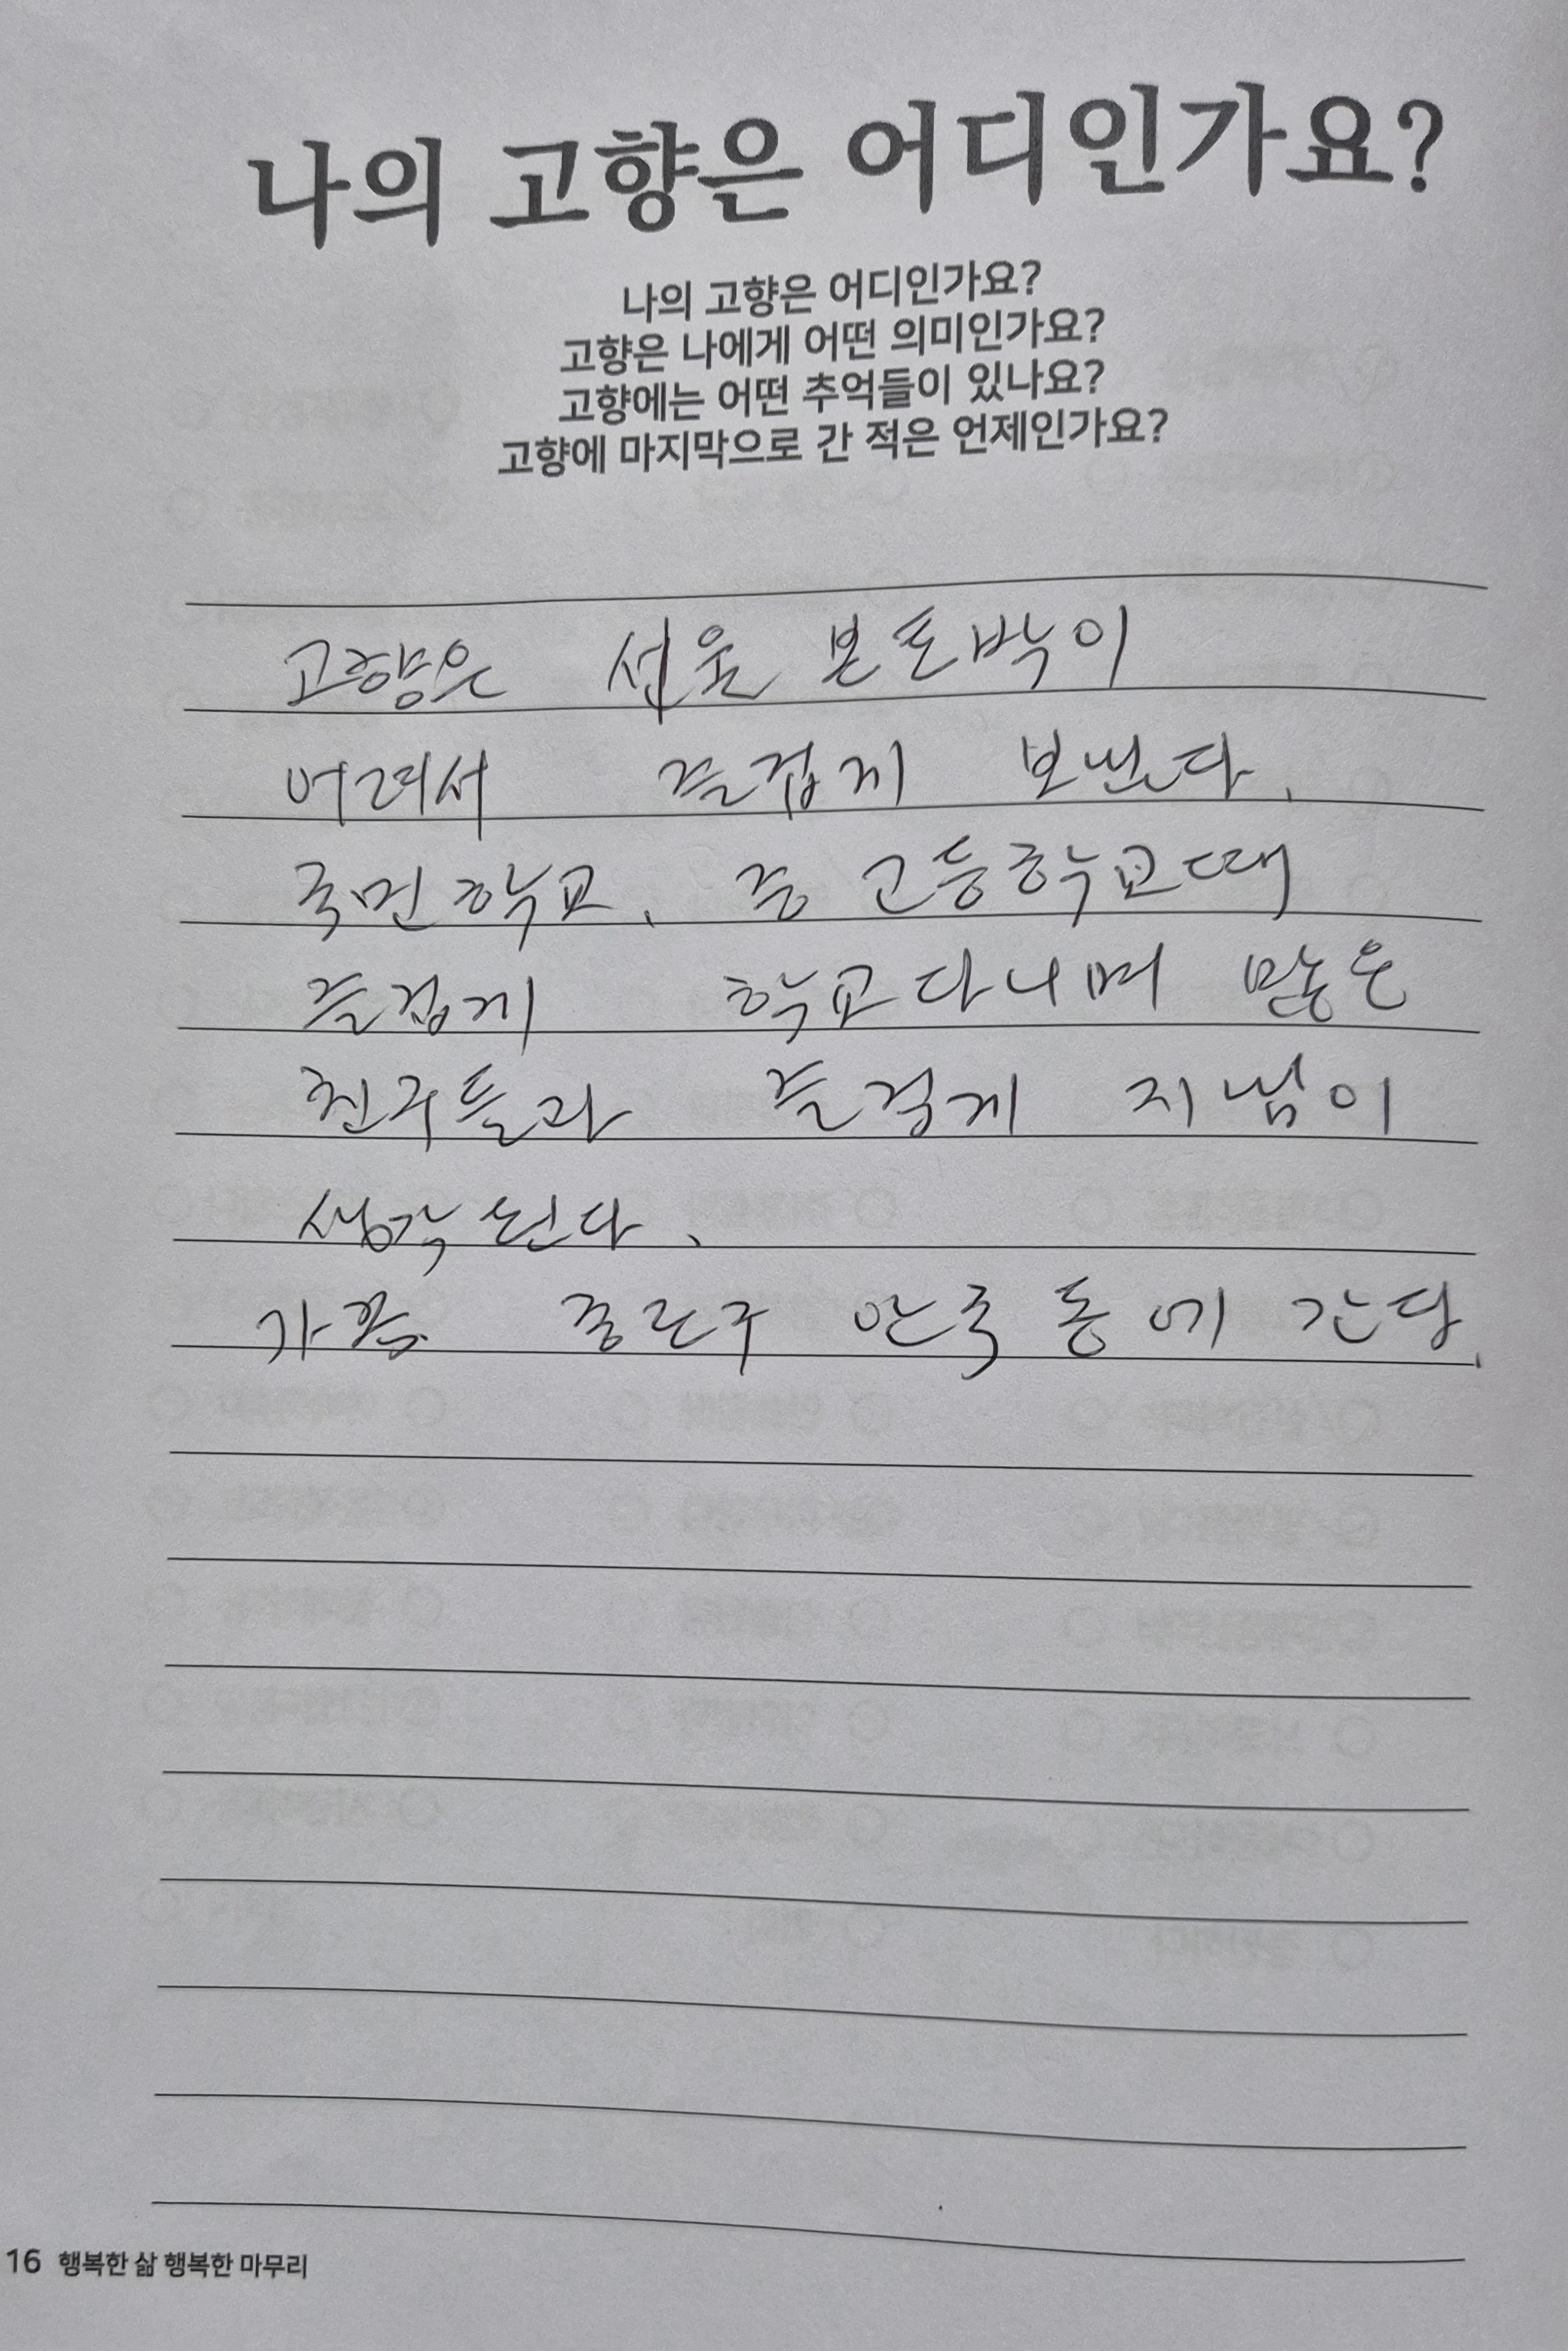 나의 고향은 어디인가요?
나의 고향은 어디인가요?
고향은 나에게 어떤 의미인가요?
고향에는 어떤 추억들이 있나요?
고향에 마지막으로 간 적은 언제인가요?
고향은 서울 본토박이
어려서 즐겁게 보낸다.
국민학교, 중 고등학교때
즐겁게 학교다니며 많은
친구들과 즐겁게 지냄이
생각된다.
가끔 종로구 안국동에 간다.
16 행복한 삶 행복한 마무리